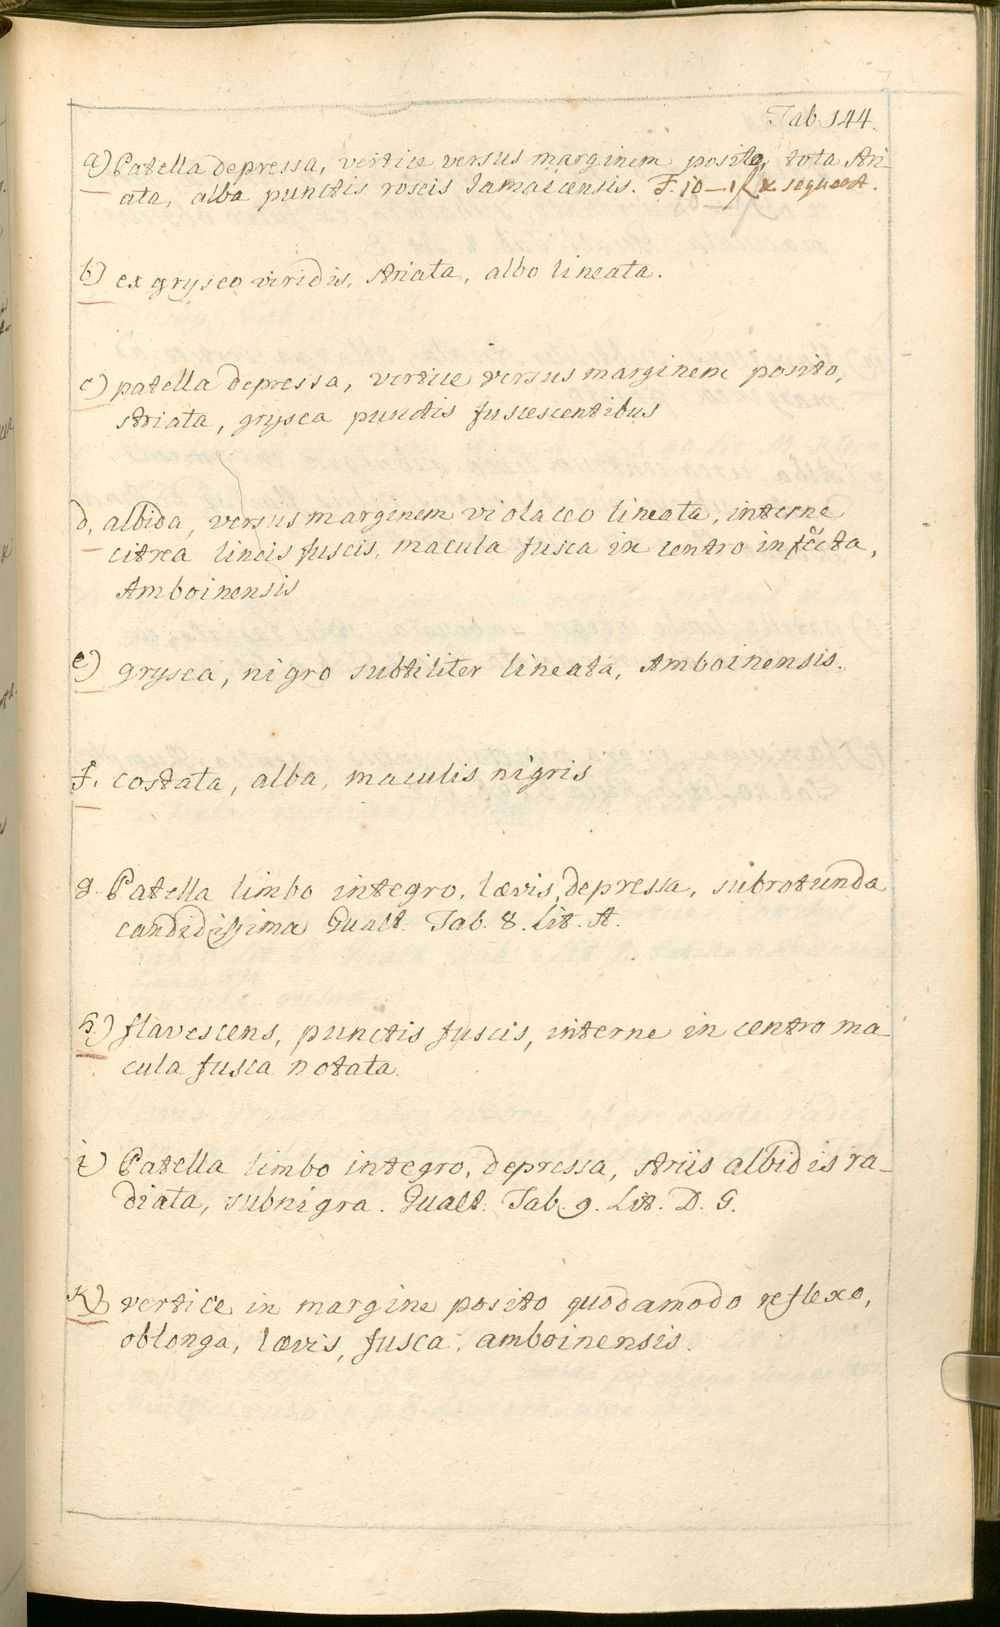 Tab. 144.
a) Patella depressa, vertice versus marginem posito, tota stri-
ata, alba punctis roseis Jamaicensis. F. 10 — 
b) ex gryseo viridis, striata, albo lineata.
c) patella depressa, vertice versus marginem posito,
striata, grysea punctis fuscescentibus
d. albida, versus marginem violaceo lineata, interne
citrea lineis fuscis, macula fusca in centro infecta,
Amboinensis
e) grysea, nigro subtiliter lineata, Amboinensis.
f. costata, alba, maculis nigris
g. Patella limbo integro, lævis, depressa, subrotunda
candidissima Gualt. Tab. 8. Lit. A.
h) flavescens, punctis fuscis, interne in centro ma-
cula fusca notata.
i) Patella limbo integro, depressa, striis albidis ra-
diata, subnigra. Gualt. Tab. 9. Lit. D. G.
K) vertice in margine posito quodamodo reflexo,
oblonga, lævis, fusca, amboinensis.